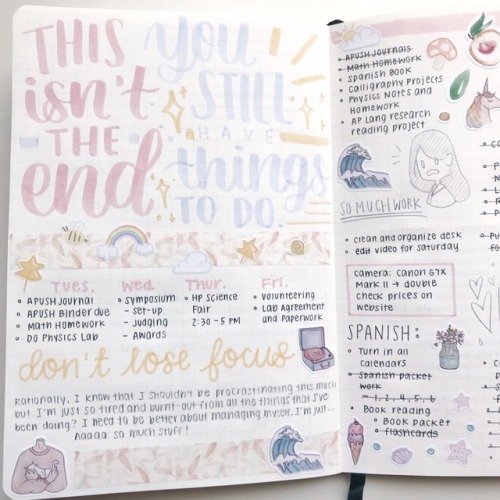 THIS
isn't
THE
end
you
STILL
HAVE
things
TO DO.
Tues.
• APUSH Journal
• APUSH Binder due
• Math Homework
• Do Physics Lab
Wed.
• Symposium
- set-up
- Judging
- Awards
Thur.
• HP Science
Fair
2:30 - 5 PM
Fri.
• Volunteering
• Lab Agreement
and Paperwork
don't lose focus
Rationally, I know that I shouldn't be procrastinating this much
but I'm just so tired and burnt-out from all the things that I've
been doing? I need to be better about managing myself. I'm just...
Aaaaa so much stuff!
• APUSH Journals
• Math Homework
• Spanish Book
• Calligraphy Projects
• Physics Notes and
Homework
• AP Lang research
reading project
SO MUCH WORK
• clean and organize desk
• edit video for Saturday
camera: Canon G7X
Mark II → double
check prices on
website
SPANISH:
• Turn in all
calendars
• Spanish packet
work
- 1, 2, 4, 5, 6
• Book reading
• Book packet
• flashcards